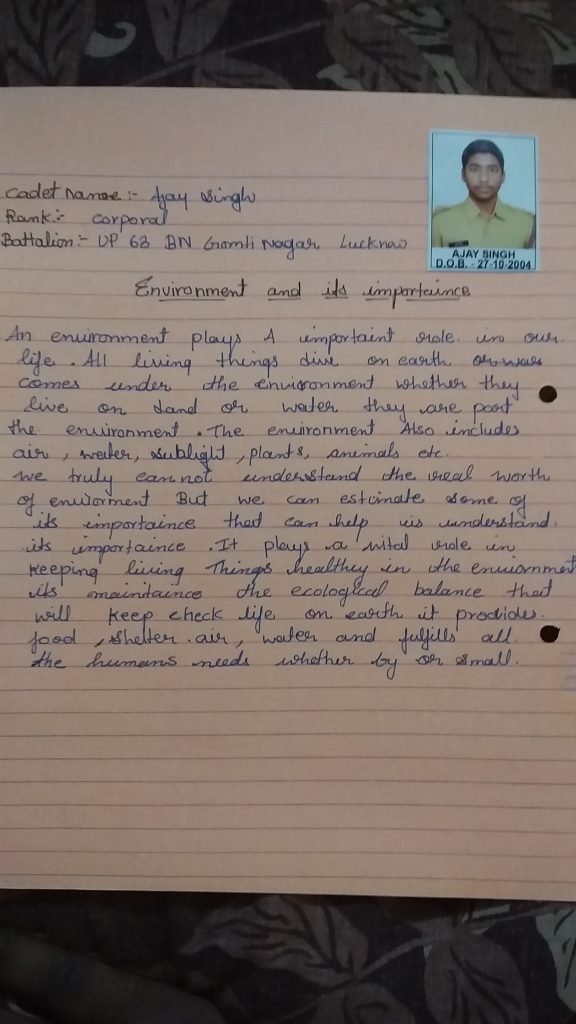 Cadet Name:- Ajay Singh
Rank:- Corporal
Battalion:- UP 63 BN Gomti Nagar Lucknow
AJAY SINGH
D.O.B. - 27-10-2004
Environment and its importaince
An environment plays A importaint role in our
life. All living things live on earth or
comes under the environment whether they
live on land or water they are part
the environment. The environment Also includes
air, water, sublight, plants, animals etc.
we truly cannot understand the real worth
of enviorment But we can estimate some of
its importaince that can help us understand.
its importaince. It plays a vital role in
keeping living Things healthey in the environment
its maintaince the ecological balance that
will keep check life on earth it prodides.
food, shelter. air, water and fulfills all.
the humans needs whether by or small.